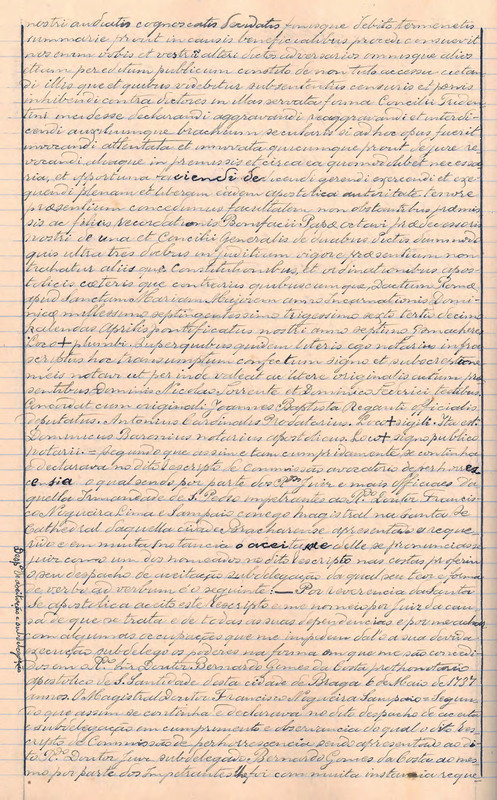 nostri auditis cognoscatis decidatis fineque debito termenetis
summarie prout in causis beneficialibus procedi consuevit
nos enim vobis et vestrũ alteri dictos adversarios omnesque alios
illum per edictum publicum constito de non tuto accessu citan
di illis que et quibus videbitur sub sententiis censuris et pœnis
inhibendi contra dictos in illas servata forma Concilii Triden
tini incidesse declarandi aggravandi reaggravandi et interdi
cendi auxiliumque brachium secularis si ad hoc opus fuerit
invocandi attentata et innovata quæcumque prout de jure re
vocandi aliaque in premissis et circa ea quomodolibet necessa
ria, et oportuna faciendi dicendi gerendi exercendi et exe
quendi plenam et liberam eadem apostolica auctoritate tenore
præsentium concedimus facultatem non obstantibus præmis
sis ac felicis recordationis Bonifacii Papæ octavi prædecessoris
nostri de una et Concilii Generalis de duabus dictis dummodo
quis ultra tres dietas in juditium vigore præsentium non
trahatur aliis que Constitutionibus, et ordinationibus apos
tolicis cæteris que contrariis quibuscumque, Dactum Romæ
apud Sanctum Mariam Majorem anno Incarnationis Domi
nicæ millessimo septingentessimo trigessimo sexto tertio decimo
kalendas Aprilis pontificatus nostri anno septimo
Loco + plumbi. Super quibus quidem literis ego notarius infra
scriptus hoc transumptum confectum signo et subscriptione
meis notavi ut perinde valeat ac litere originalis autum præ
sentibus Dominis Nicolao Torrente et Dominico Ferrici testibus.
Concordat cum originali Joannes Baptista Regante officialis
deputatus. Antonius Cardinalis Prodatarius. Loco + sigili. Ita est
Dominicus Bacorius notarius apostolicus. Loco + signo publico
Notarii = Segundo que assim e tam cumpridamente se continha
e declarava no dito rescripto de Commissão avocatorio de perhores
cesia o qual sendo por parte dos ditos Juiz e mais officiaes da
quella Irmandade de S. Pedro impetrantes ao Rdo Doutor Francis
co Nogueira Lima e Sampaio conego magistral na Santa Se
Cathedral daquella cidade Bracharense apresentado e reque
rido e em muita instancia o aceitasse e delle se pronunciasse
juiz como um dos nomeados no dito rescripto nas costas proferiu
o seu despacho de aceitação subdelegação do qual seu teor e forma
de verbo ad verbum é o seguinte: — Por reverencia da Santa
Se apostolica aceito este rescripto e me nomeio por juiz da cau
sa de que se trata e de todas as suas dependencias e por me achar
com algumas occupações que me impedem dal-o a sua devida
execução subdelego os poderes na forma em que me são conce
didos em o Rdo Snr Doutor Bernardo Gomes da Costa prothonotario
apostolico de S. Santidade desta cidade de Braga 6 de Maio de 1737
annos. O Magistral Doutor Francisco Nogueira Sampaio = Segun
do que assim se continha e declarava no dito despacho de aceita
e subdelegação em cumprimento e observancia do qual o dito res
cripto e Commissão de perhorrescencia sendo apresentado ao di
to Rdo Doutor juiz subdelegado Bernardo Gomes da Costa ao mes
mo por parte dos Impetrantes lhe foi com muita instancia reque